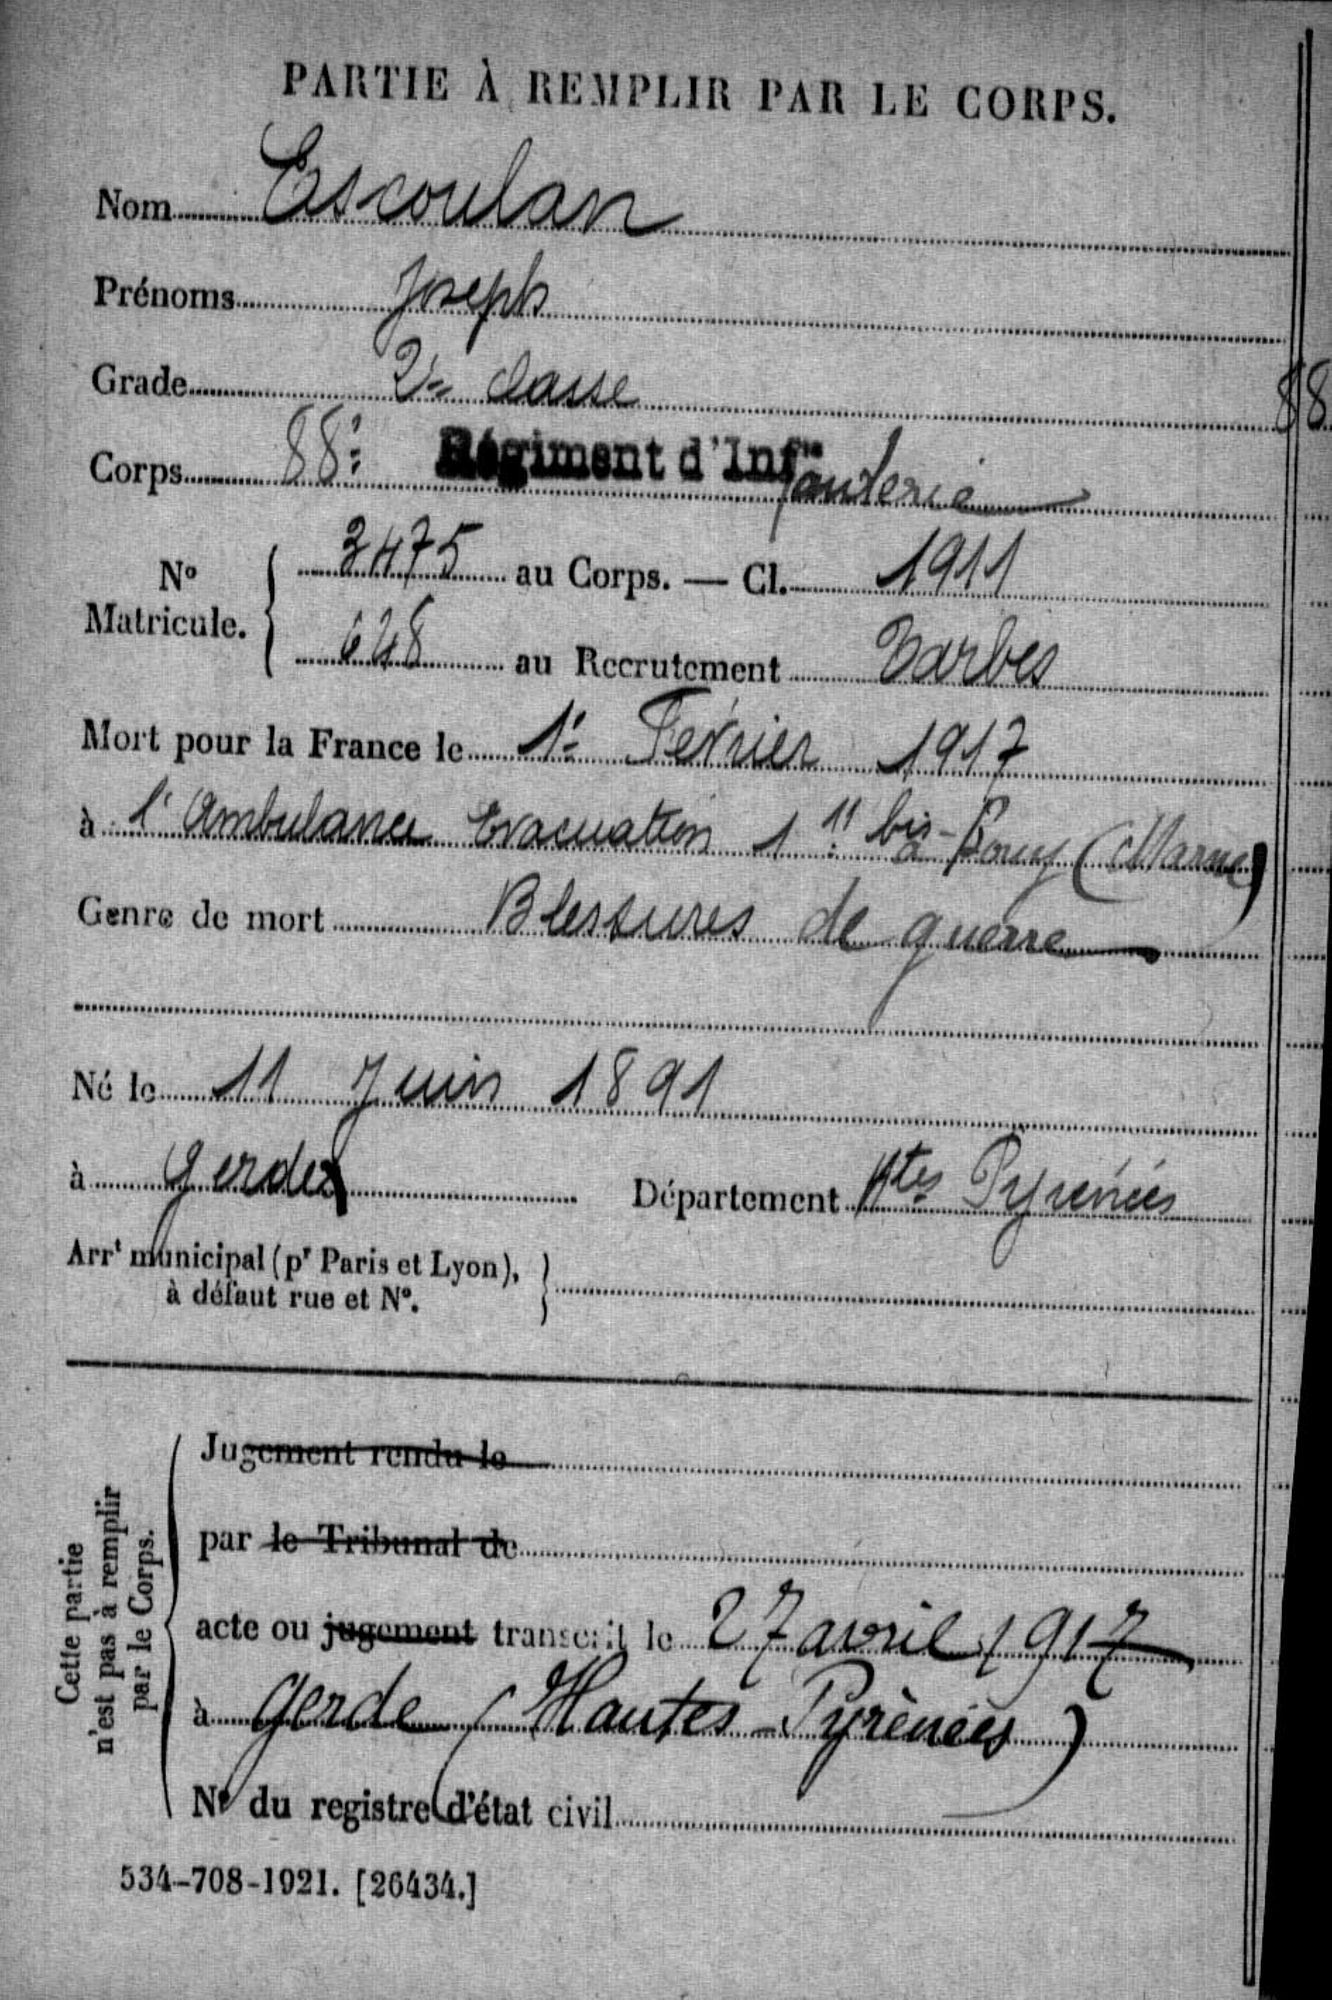 PARTIE À REMPLIR PAR LE CORPS.
Nom Escoulan
Prénoms Joseph
Grade 2e classe
88
Corps 88e Régiment d'Infie fanterie
No Matricule. { 3475 au Corps. — Cl. 1911
628 au Recrutement Tarbes
Mort pour la France le 1er Février 1917
à l'Ambulance Evacuation 1 11 bis - Bouy (Marne)
Genre de mort Blessures de guerre
Né le 11 Juin 1891
à Gerde Département Htes Pyrénées
Arrt municipal (pr Paris et Lyon), }
à défaut rue et No.
Cette partie
n'est pas à remplir
par le Corps.
Jugement rendu le
par le Tribunal de
acte ou jugement transcrit le 27 avril 1917
à Gerde (Hautes-Pyrénées)
No du registre d'état civil
534-708-1921. [26434.]